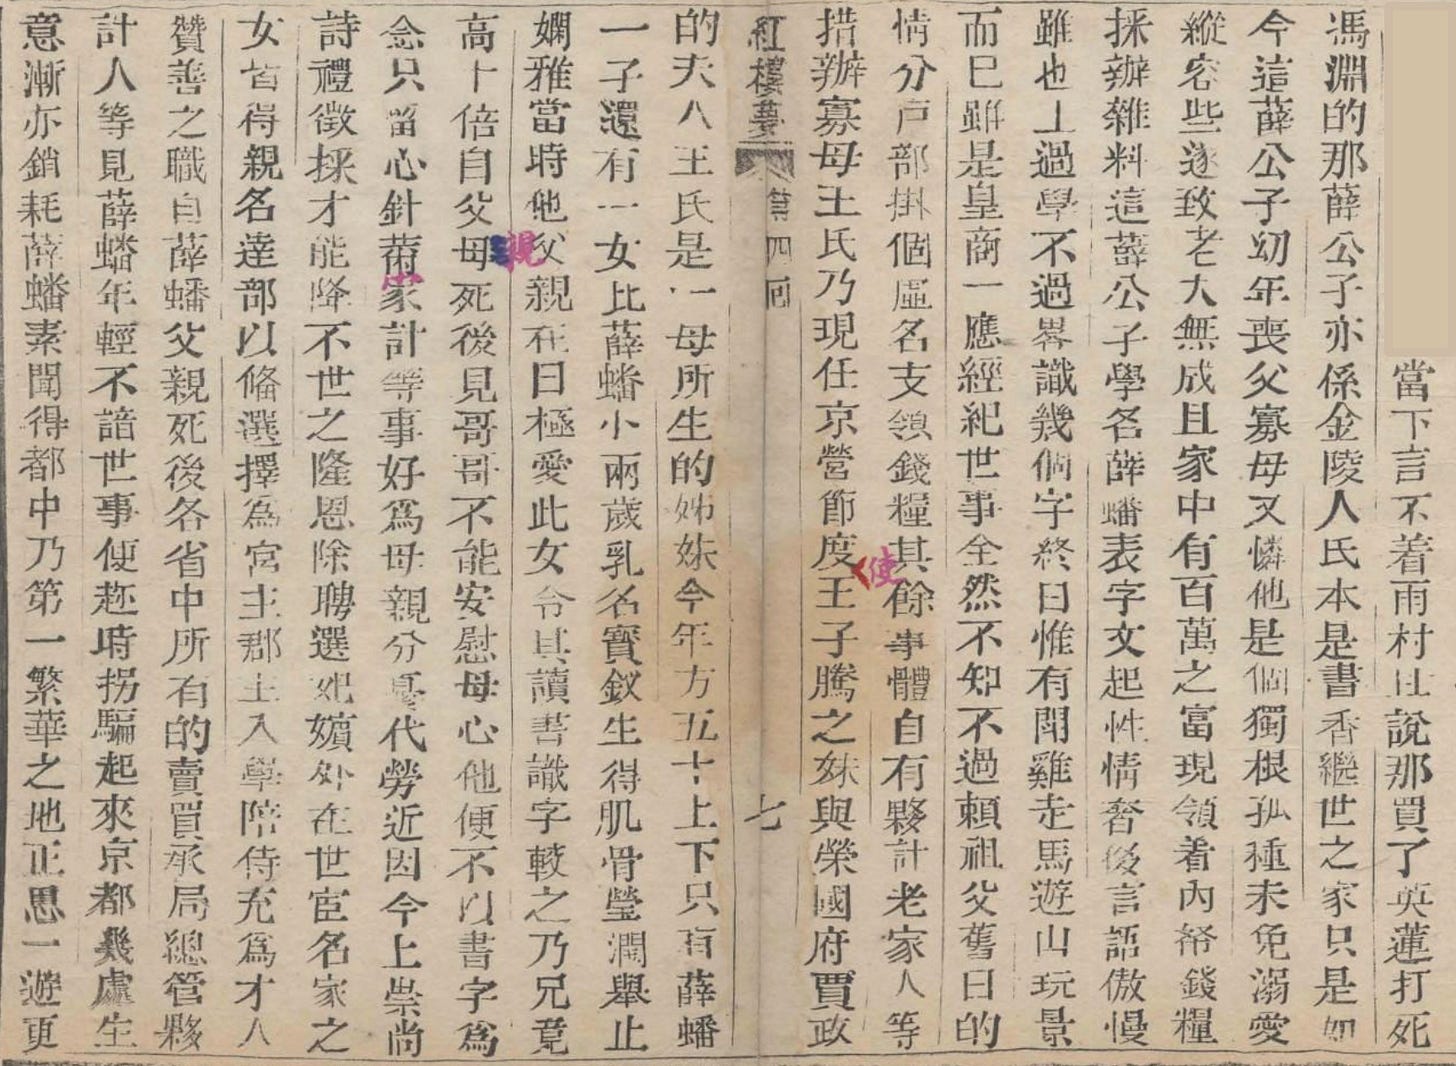 當下言不着雨村且說那買了英蓮打死
馮淵的那薛公子亦係金陵人氏本是書香繼世之家只是如
今這薛公子幼年喪父寡母又憐他是個獨根孤種未免溺愛
縱容些遂致老大無成且家中有百萬之富現領着內帑錢糧
採辦雜料這薛公子學名薛蟠表字文起性情奢侈言語傲慢
雖也上過學不過畧識幾個字終日惟有鬥雞走馬遊山玩景
而已雖是皇商一應經紀世事全然不知不過賴祖父舊日的
情分戶部掛個虛名支領錢糧其餘事體自有夥計老家人等
措辦寡母王氏乃現任京營節度使王子騰之妹與榮國府賈政
紅樓夢 第四回 七
的夫人王氏是一母所生的姊妹今年方五十上下只有薛蟠
一子還有一女比薛蟠小兩歲乳名寶釵生得肌骨瑩潤舉止
嫻雅當時他父親在日極愛此女令其讀書識字較之乃兄竟
高十倍自父親死後見哥哥不能安慰母心他便不以書字為
念只留心針黹家計等事好爲母親分憂代勞近因今上崇尚
詩禮徵採才能降不世之隆恩除聘選妃嬪外在世宦名家之
女皆得親名達部以備選擇為宮主郡主入學陪侍充爲才人
贊善之職自薛蟠父親死後各省中所有的賣買承局總管夥
計人等見薛蟠年輕不諳世事便趂時拐騙起來京都幾處生
意漸亦銷耗薛蟠素聞得都中乃第一繁華之地正思一遊更